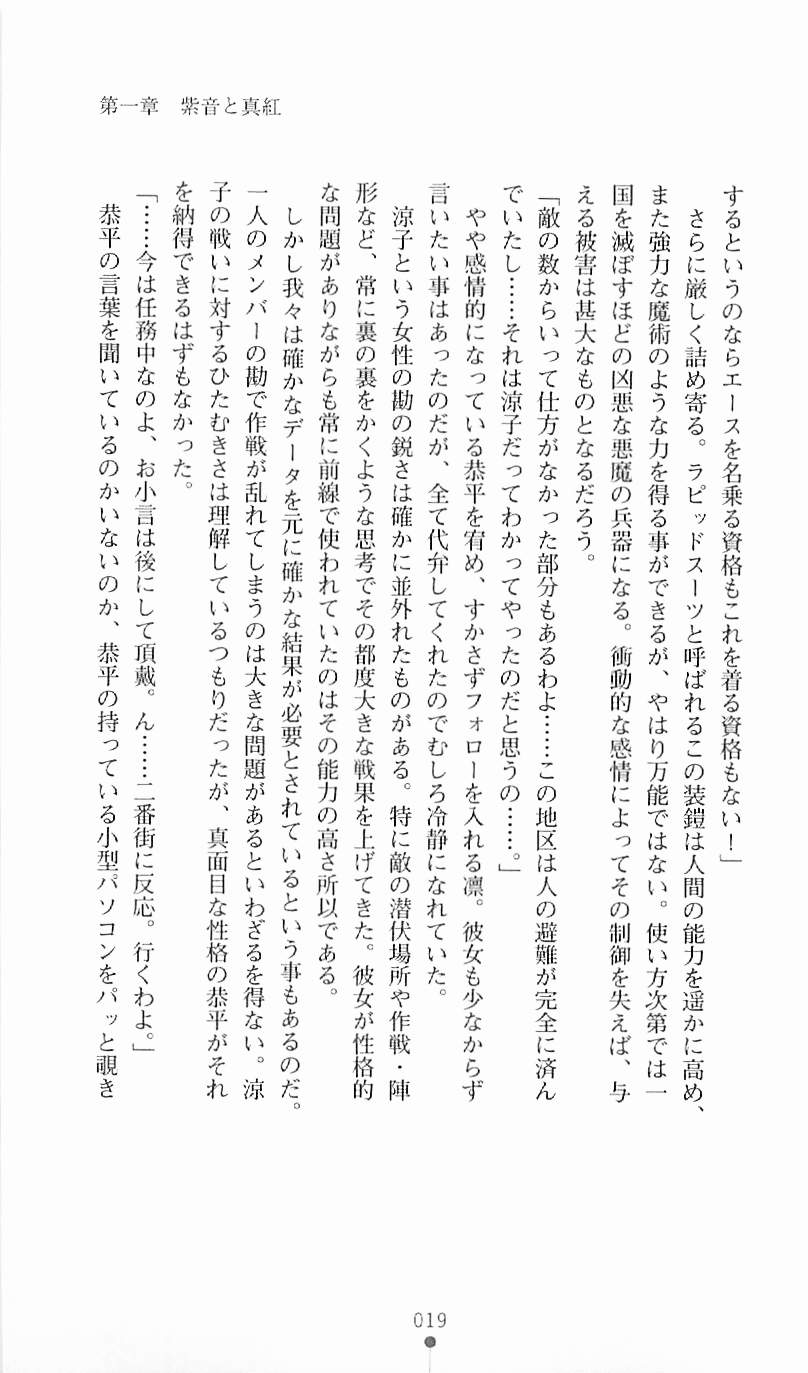 第一章　紫音と真紅
するというのならエースを名乗る資格もこれを着る資格もない！」
さらに厳しく詰め寄る。ラピッドスーツと呼ばれるこの装鎧は人間の能力を遥かに高め、
また強力な魔術のような力を得る事ができるが、やはり万能ではない。使い方次第では一
国を滅ぼすほどの凶悪な悪魔の兵器になる。衝動的な感情によってその制御を失えば、与
える被害は甚大なものとなるだろう。
「敵の数からいって仕方がなかった部分もあるわよ……この地区は人の避難が完全に済ん
でいたし……それは涼子だってわかってやったのだと思うの……。」
やや感情的になっている恭平を宥め、すかさずフォローを入れる凛。彼女も少なからず
言いたい事はあったのだが、全て代弁してくれたのでむしろ冷静になれていた。
涼子という女性の勘の鋭さは確かに並外れたものがある。特に敵の潜伏場所や作戦・陣
形など、常に裏の裏をかくような思考でその都度大きな戦果を上げてきた。彼女が性格的
な問題がありながらも常に前線で使われていたのはその能力の高さ所以である。
しかし我々は確かなデータを元に確かな結果が必要とされているという事もあるのだ。
一人のメンバーの勘で作戦が乱れてしまうのは大きな問題があるといわざるを得ない。涼
子の戦いに対するひたむきさは理解しているつもりだったが、真面目な性格の恭平がそれ
を納得できるはずもなかった。
「……今は任務中なのよ、お小言は後にして頂戴。ん……二番街に反応。行くわよ。」
恭平の言葉を聞いているのかいないのか、恭平の持っている小型パソコンをパッと覗き
019